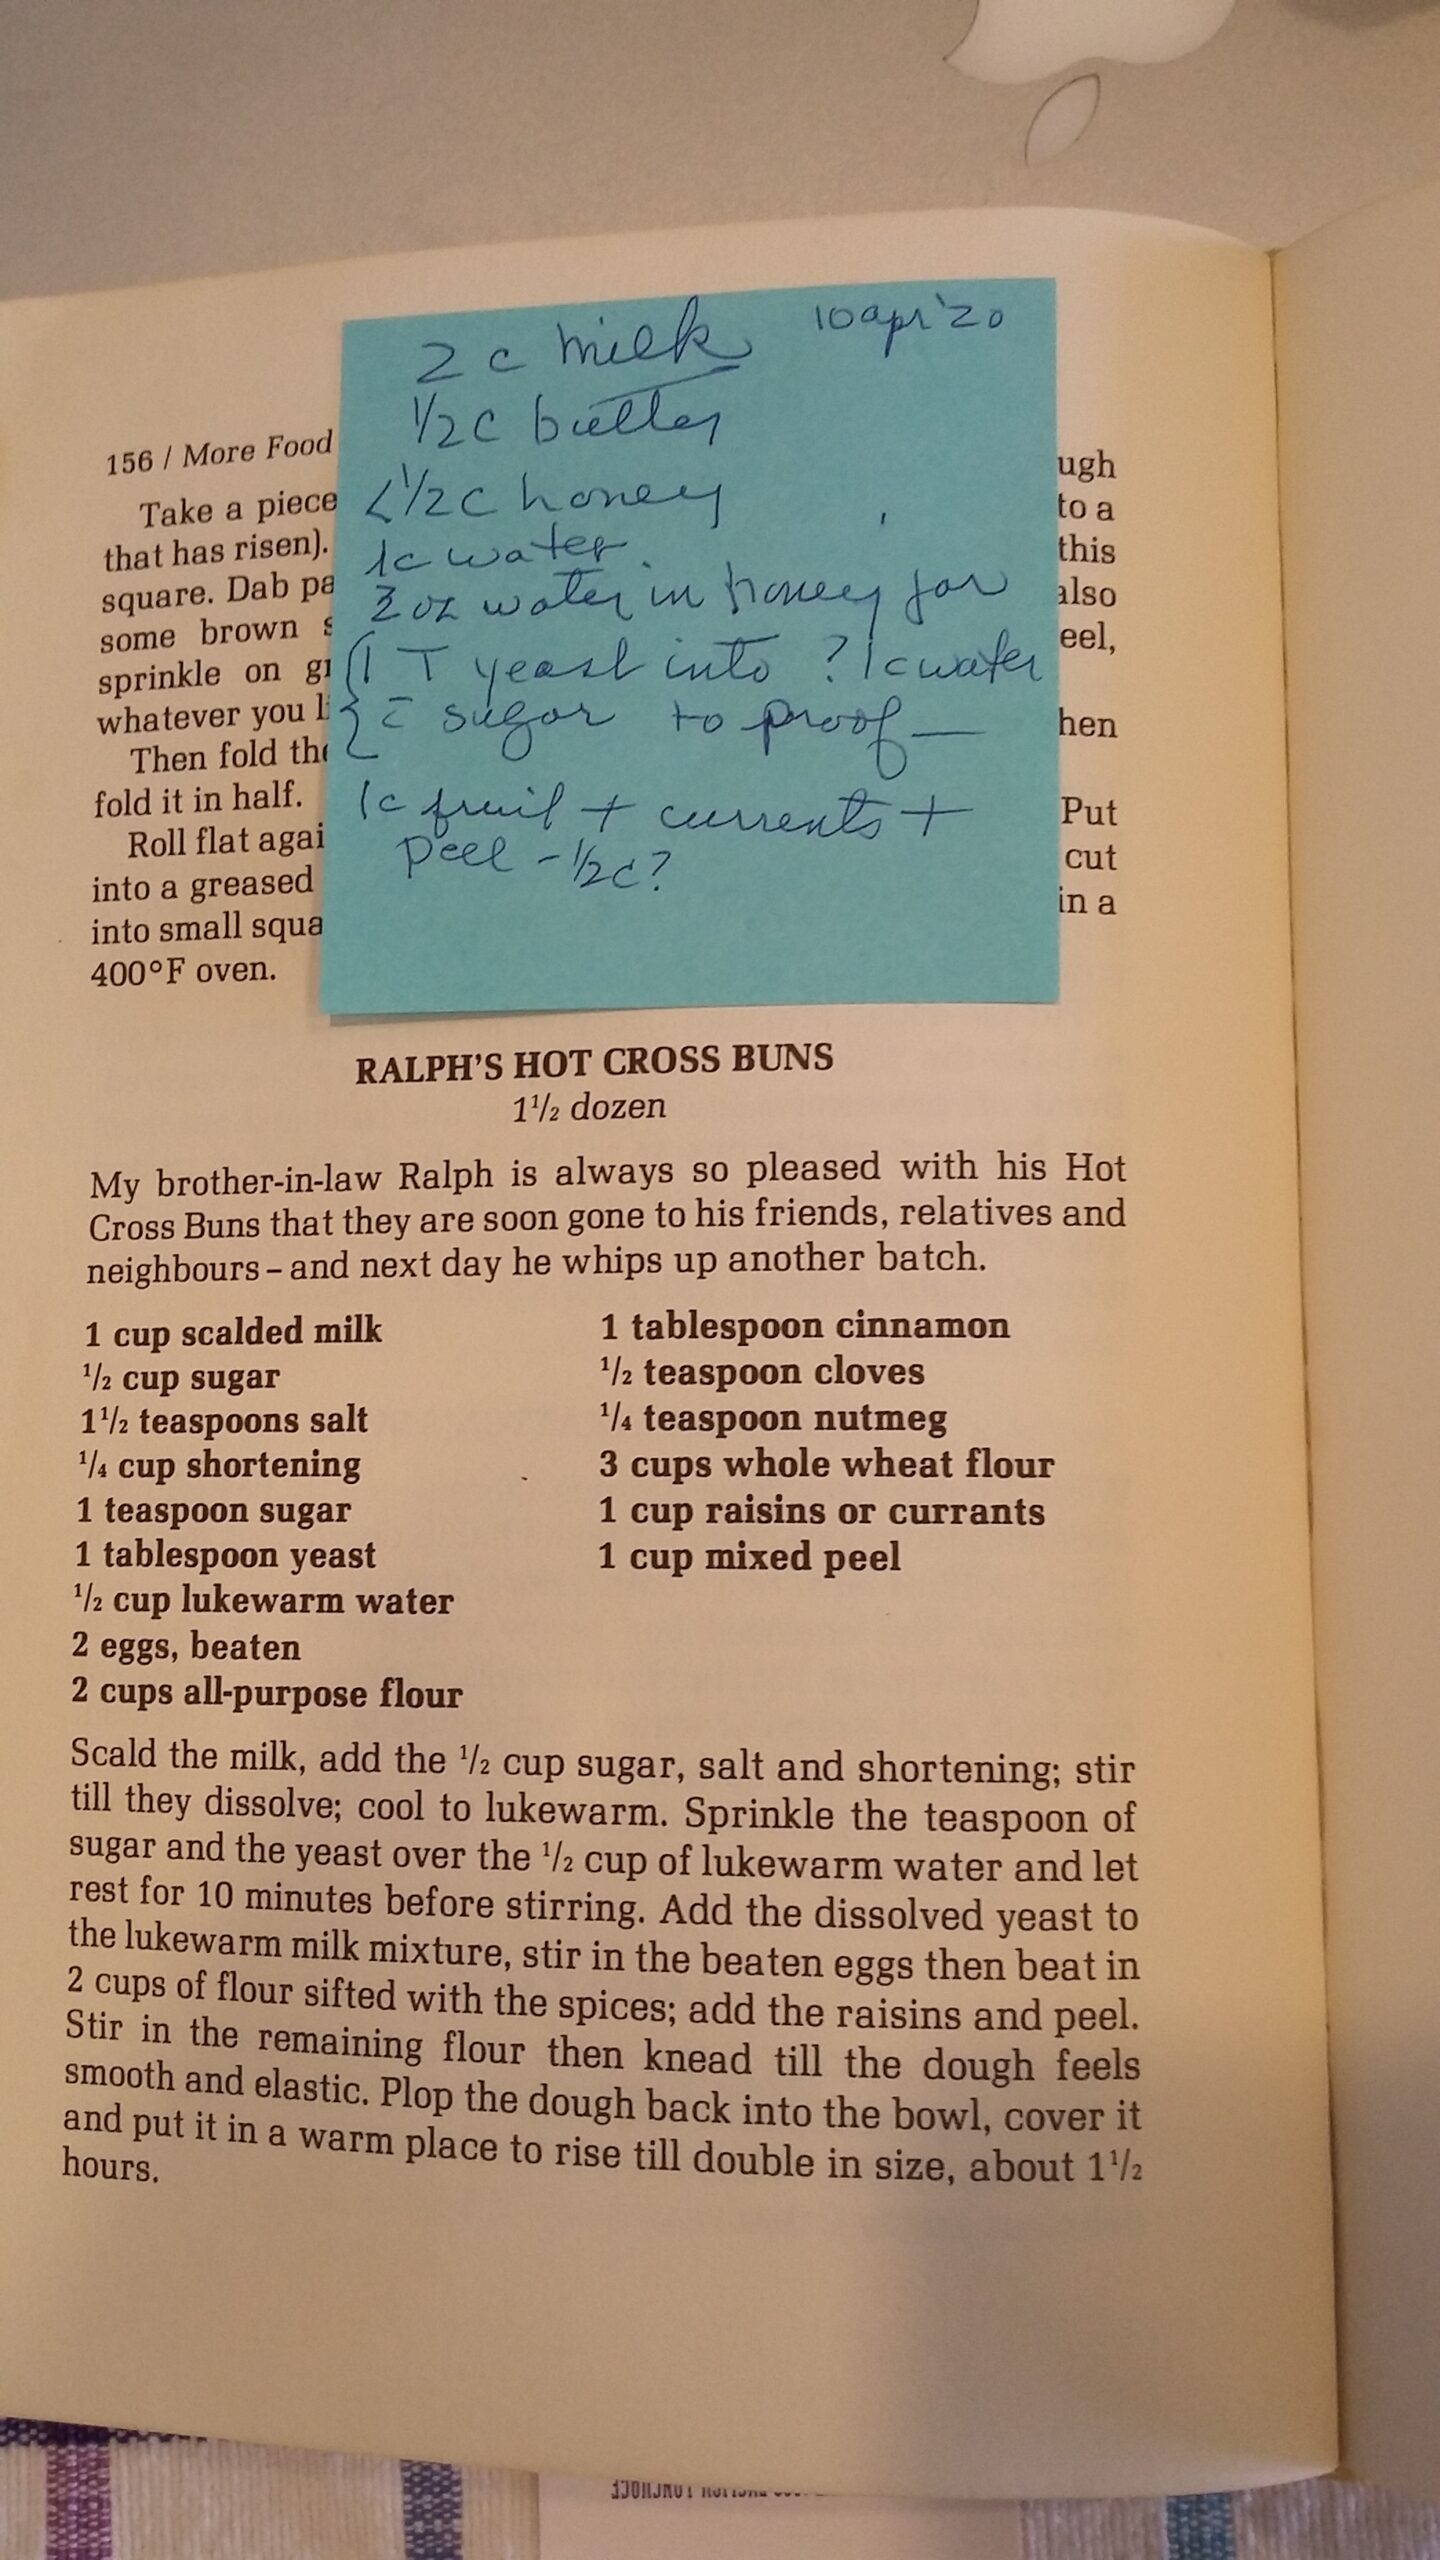 2 c milk 10 apr '20
1/2 c butter
< 1/2 c honey
1c water
oz water in honey jar
1 T yeast into ? 1 c water
c̄ sugar to proof —
1c fruit + currents +
peel - 1/2c?
156 / More Food
ugh
Take a piece
to a
that has risen).
this
square. Dab pa
also
some brown s
eel,
sprinkle on gr
whatever you li
hen
Then fold the
fold it in half.
Put
Roll flat agai
cut
into a greased
in a
into small squa
400°F oven.
RALPH'S HOT CROSS BUNS
1 1/2 dozen
My brother-in-law Ralph is always so pleased with his Hot
Cross Buns that they are soon gone to his friends, relatives and
neighbours – and next day he whips up another batch.
1 cup scalded milk
1/2 cup sugar
1 1/2 teaspoons salt
1/4 cup shortening
1 teaspoon sugar
1 tablespoon yeast
1/2 cup lukewarm water
2 eggs, beaten
2 cups all-purpose flour
1 tablespoon cinnamon
1/2 teaspoon cloves
1/4 teaspoon nutmeg
3 cups whole wheat flour
1 cup raisins or currants
1 cup mixed peel
Scald the milk, add the 1/2 cup sugar, salt and shortening; stir
till they dissolve; cool to lukewarm. Sprinkle the teaspoon of
sugar and the yeast over the 1/2 cup of lukewarm water and let
rest for 10 minutes before stirring. Add the dissolved yeast to
the lukewarm milk mixture, stir in the beaten eggs then beat in
2 cups of flour sifted with the spices; add the raisins and peel.
Stir in the remaining flour then knead till the dough feels
smooth and elastic. Plop the dough back into the bowl, cover it
and put it in a warm place to rise till double in size, about 1 1/2
hours.